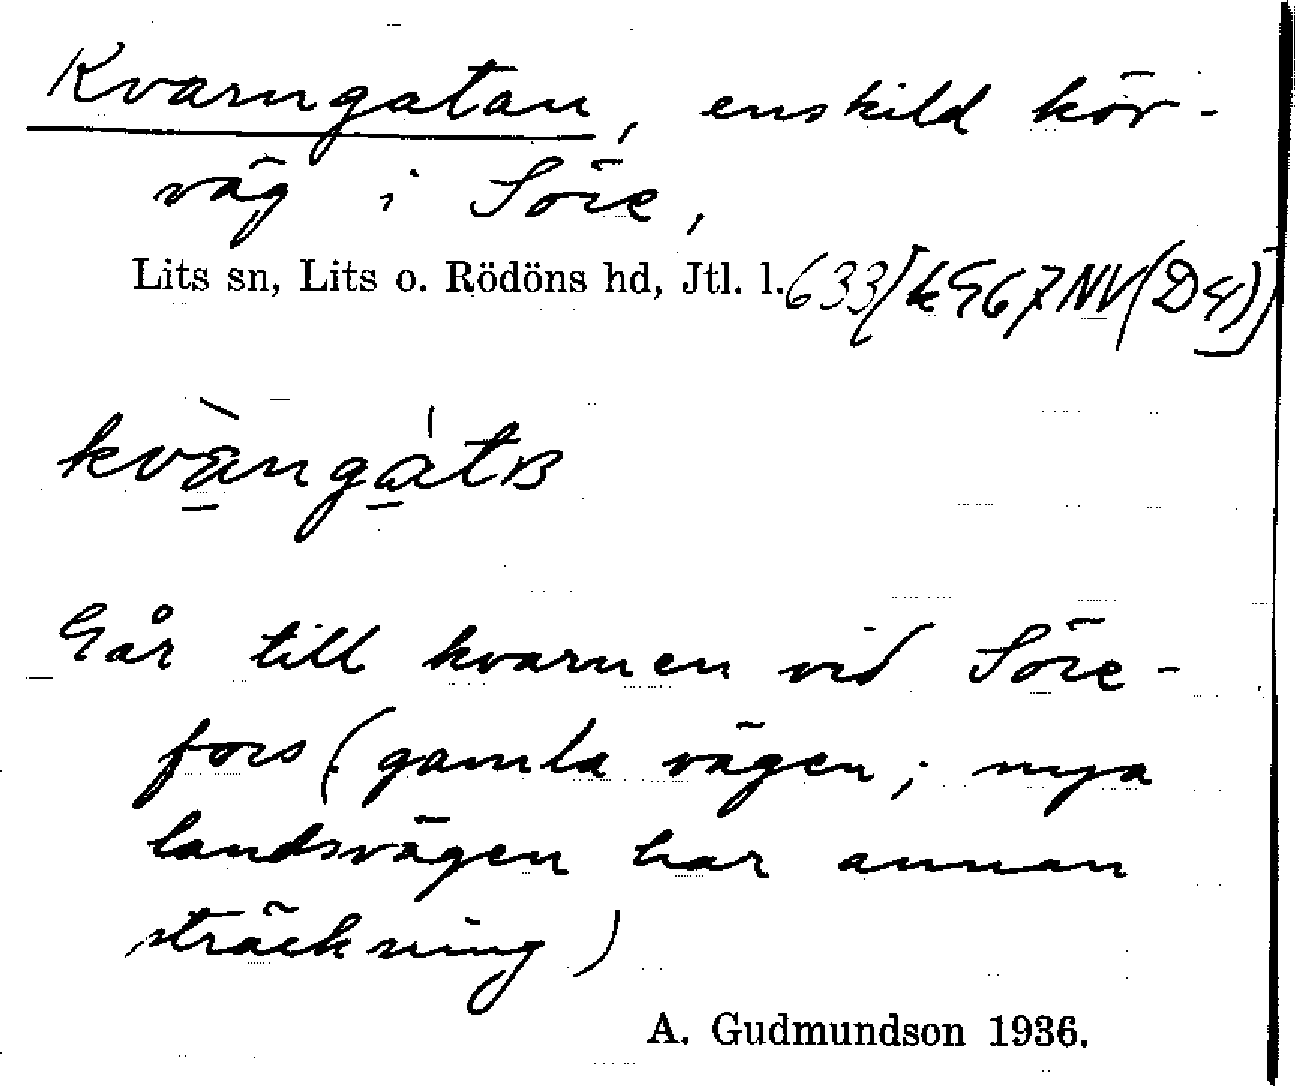 Kvarngatan, enskild kör-
väg i Söre,
Lits sn, Lits o. Rödöns hd, Jtl. l. 633/
kvàngátʙ
Går till kvarnen vid Söre-
fors (gamla vägen; nya
landsvägen har annan
sträckning)
A. Gudmundson 1936.